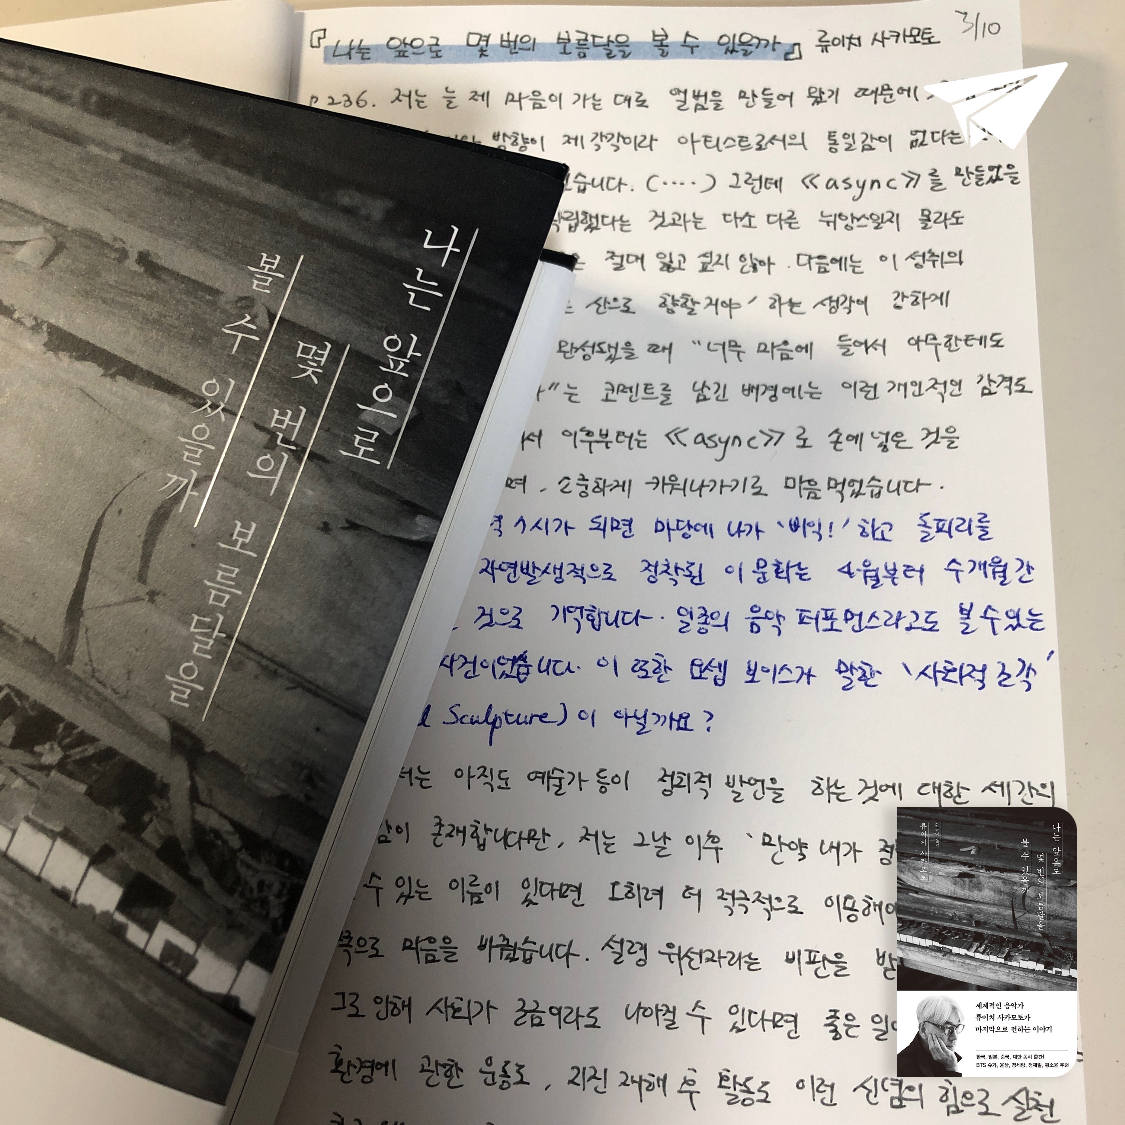 『나는 앞으로 몇 번의 보름달을 볼 수 있을까』 류이치 사카모토 3/10
p 236. 저는 늘 제 마음이 가는대로 앨범을 만들어 왔기 때문에
방향이 제각각이라 아티스트로서의 통일감이 없다는
습니다. (····) 그런데 《async》를 만들었을
립했다는 것과는 다소 다른 뉘앙스일지 몰라도
은 절대 잃고 싶지 않아. 다음에는 이 성취의
는 산으로 향할거야' 하는 생각이 강하게
완성됐을 때 "너무 마음에 들어서 아무한테도
"는 코멘트를 남긴 배경에는 이런 개인적인 감격도
서 이후부터는 《async》로 손에 넣은 것을
며, 소중하게 키워나가기로 마음먹었습니다.
시가 되면 마당에 나가 '삐익!' 하고 돌피리를
자연발생적으로 정착된 이 문화는 4월부터 수개월간
것으로 기억합니다. 일종의 음악 퍼포먼스라고도 볼 수 있는
사건이었습니다. 이 또한 요셉 보이스가 말한 '사회적 조각'
l Sculpture)이 아닐까요?
서는 아직도 예술가 등이 정치적 발언을 하는 것에 대한 세간의
감이 존재합니다만, 저는 그날 이후 '만약 내가
수 있는 이름이 있다면 오히려 더 적극적으로 이용해야
쪽으로 마음을 바꿨습니다. 설령 위선자라는 비판을 받
그로 인해 사회가 조금이라도 나아질 수 있다면 좋은 일
환경에 관한 운동도, 지진 재해 후 활동도 이런 신념의 힘으로 실천
나는 앞으로
몇 번의 보름달을
볼 수 있을까
나는 앞으로
몇 번의 보름달을
볼 수 있을까
류이치 사카모토
세계적인 음악가
류이치 사카모토가
마지막으로 전하는 이야기
한국, 일본, 중국, 대만 동시 출간!